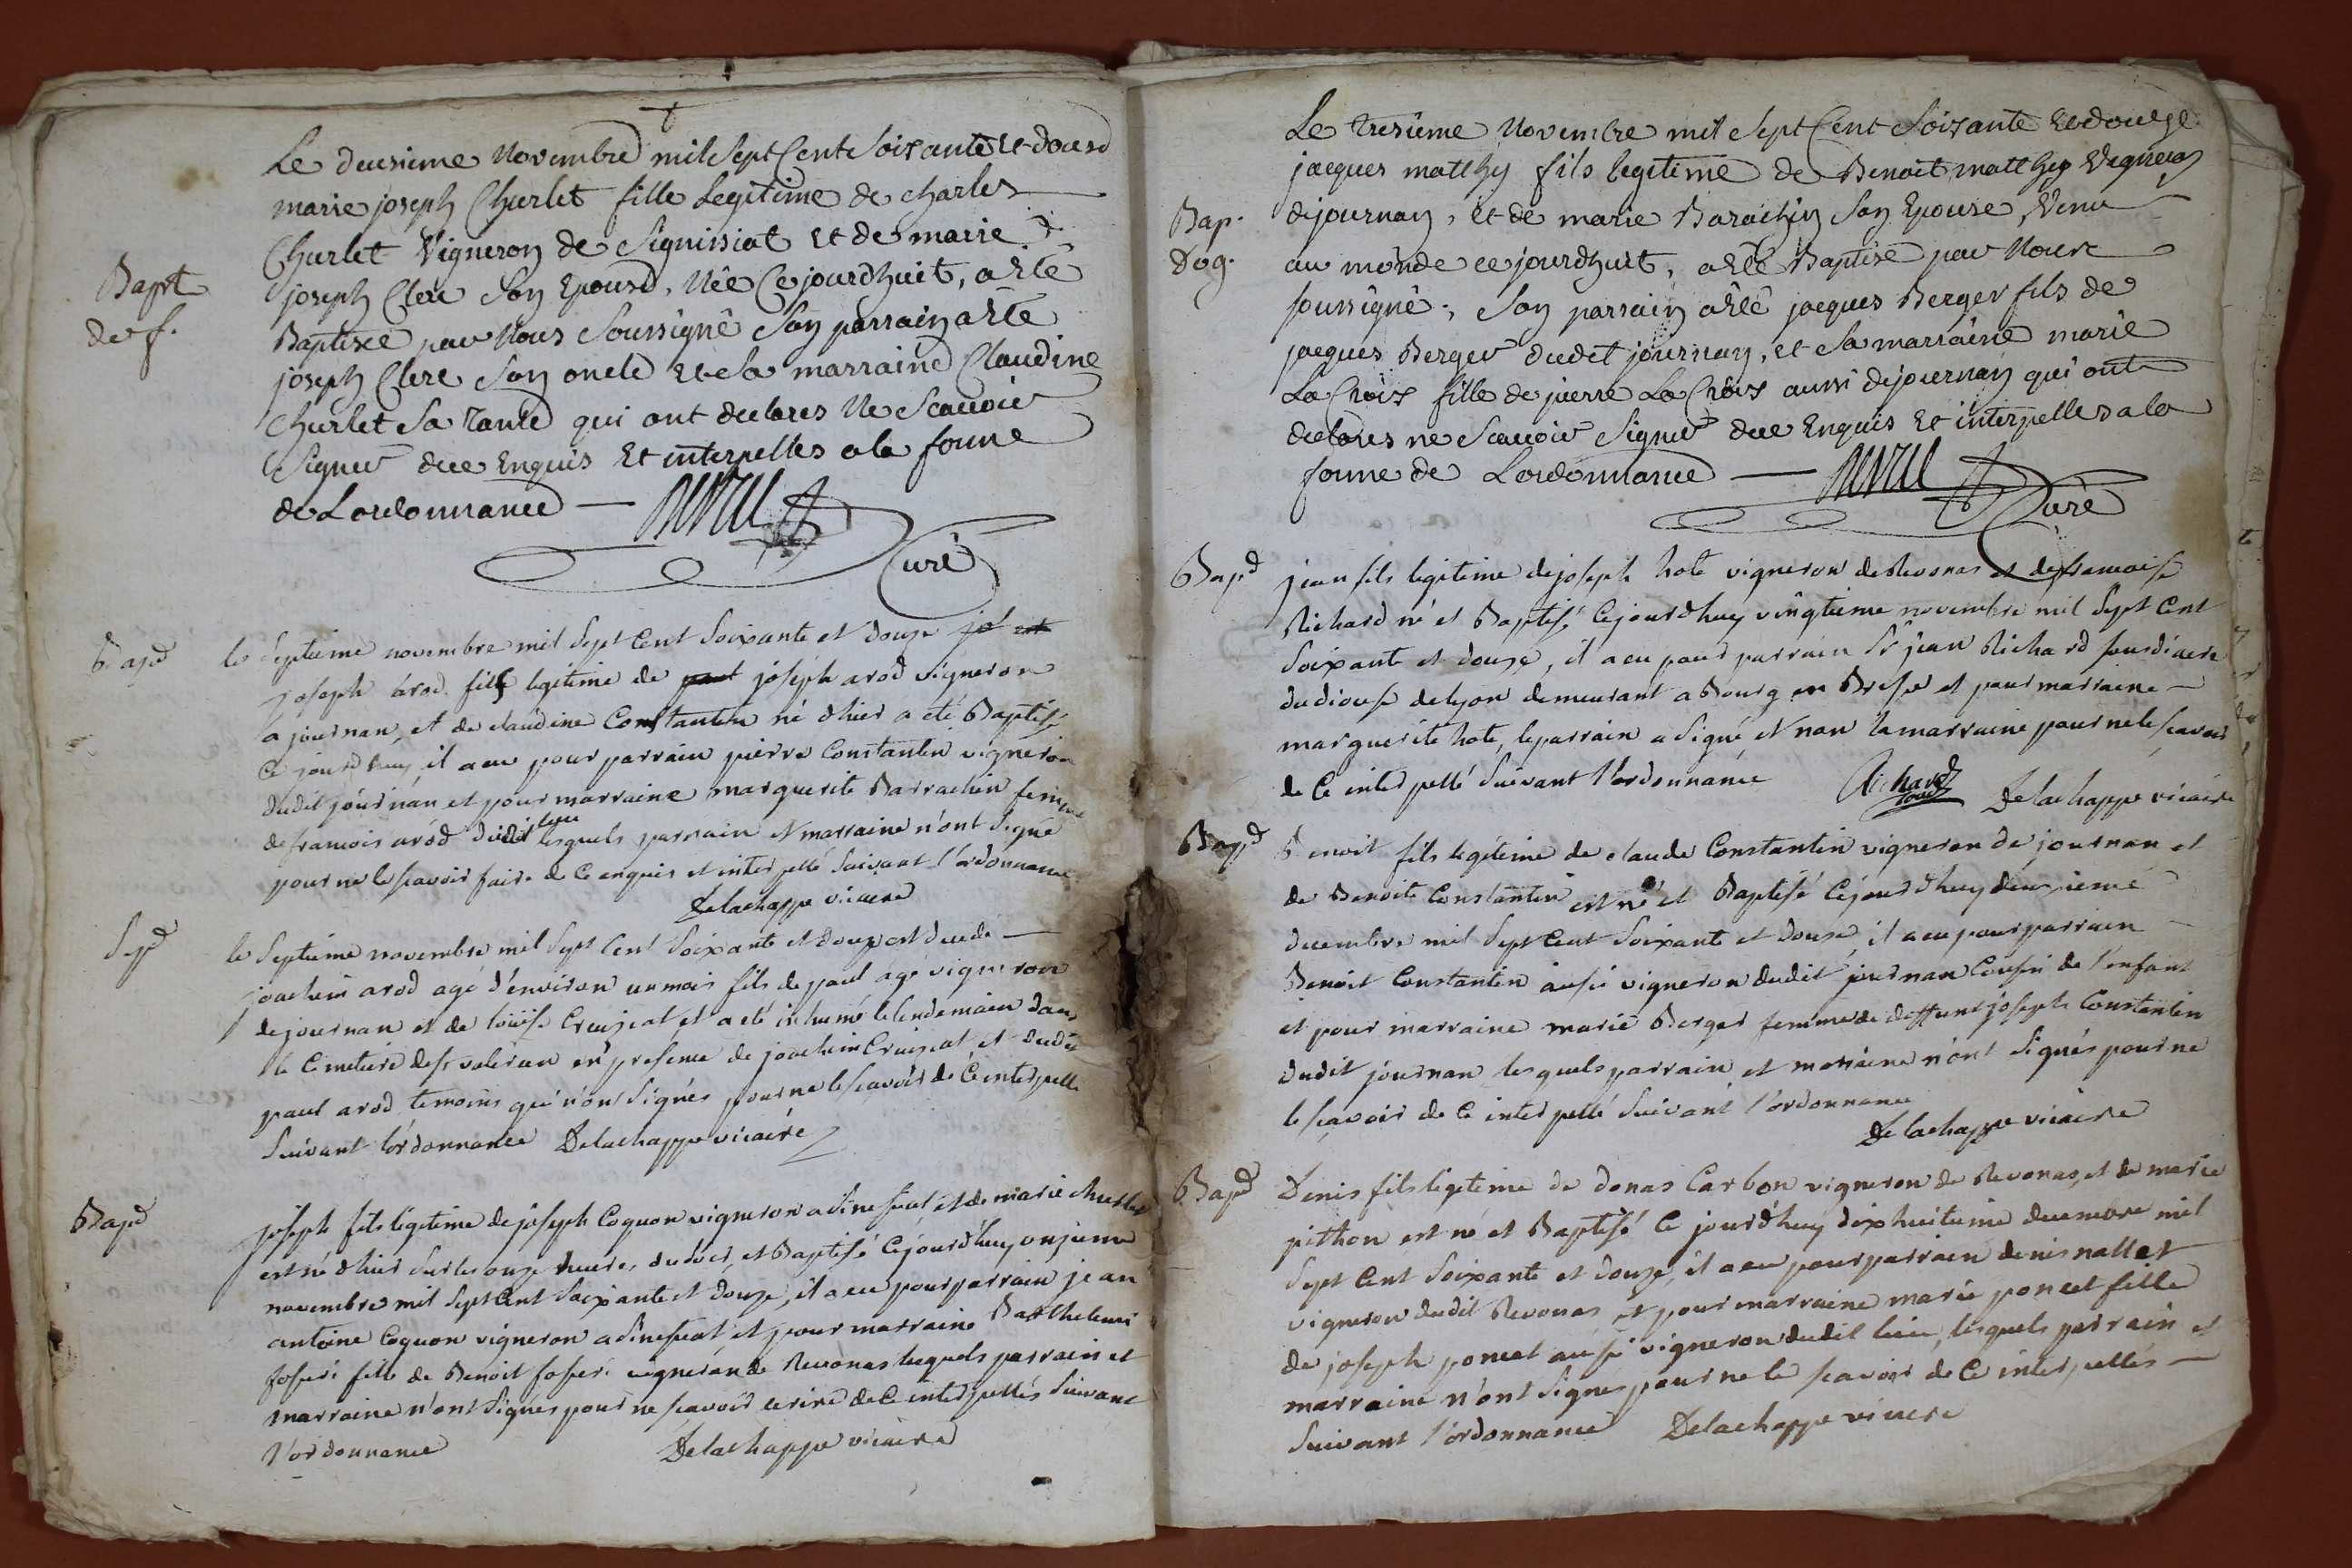 Le deuxieme Novembre mil sept Cent Soixante et douse
marie joseph Churlet fille Legitime de charles
Bapt de f.
Churlet Vigneron de Signissiat et de marie
joseph Clere Son Epouse, Née Cejourdhuit, a Eté
Baptisee par Nous Soussigné Son parrain a Eté
joseph Clere Son oncle et Sa marraine Claudine
Churlet Sa Tante qui ont declarés Ne Scauoir
Signer due Enquis Et interpelles a la forme
de Lordonnance
Curé
Bapd
le Septieme novembre mil Sept Cent Soixante et douze
joseph arod fils legitime de joseph arod vigneron
a journan, et de claudine Constantin né d'hier a été Baptisé
Ce jourdhuy, il a eu pour parrain pierre Constantin vigneron
dudit journan et pour marraine marguerite Barrachin femme
de francois arod dudit lieu lesquels parrain et marraine n'ont signé
pour ne le scavoir faire de Ce enquis et interpellé Suivant l'ordonnance
Delachappe vicaire
Sepd
le Septieme novembre mil Sept Cent Soixante et douze est decedé
joachim arod agé d'environ un mois fils de paul agé vigneron
de journan et de loüise Cruiziat et a été inhumé le lendemain dans
le Cimetiere de st valerien en presence de joachim Cruiziat et dudit
paul arod temoins qui n'ont Signés pour ne le scavoir de Ce interpellé
Suivant l'ordonnance Delachappe vicaire
Bapd
joseph fils legitime de joseph Coquon vigneron a et de marie churlet
est né d'hier Sur les onze heures du soir, et Baptisé Cejourd'huy onzieme
novembre mil Sept Cent Soixante et douze, il a eu pour parrain jean
antoine Coquon vigneron a et pour marraine Barthelemi
fille de Benoit vigneron de Revonas lesquels parrain et
marraine n'ont Signés pour ne scavoir ecrire de Ce interpellés Suivant
l'ordonnance Delachappe vicaire
Le Tresieme Novembre mil Sept Cent Soixante et douze
jacques matthy fils legitime de Benoit matthy Vigneron
Bap. dog.
dejournan, et de marie Barachin Son Epouse, Venu
au monde cejourdhuit, a Eté Baptise par Nous
soussigné; Son parrain a Eté jacques Berger fils de
jacques Berger dudit journan, et Sa marraine marie
La Croix fille de pierre La Croix aussi dejournan qui ont
declarés ne Scauoir Signer due Enquis Et interpelles a la
forme de Lordonnance
Curé
Bapd
jean fils legitime de joseph hote vigneron de Revonas et de francoise
Richard né et Baptisé Cejourdhuy vingtieme novembre mil Sept Cent
Soixante et douze, il a eu pour parrain Sr jean Richard sousdiacre
du diocese de lyon demeurant a Bourg en Bresse et pour marraine
marguerite hote, le parrain a signé et non la marraine pour ne le scavoir
de Ce interpellé Suivant l'ordonnance Richard Delachappe vicaire
Bapd
Benoit fils legitime de claude Constantin vigneron de journan et
de Benoite Constantin est né et Baptisé Cejourdhuy deuxieme
decembre mil Sept Cent Soixante et douze, il a eu pour parrain
Benoit Constantin aussi vigneron dudit journan Cousin de l'enfant
et pour marraine marie Berger femme de deffunt joseph Constantin
dudit journan lesquels parrain et marraine n'ont Signés pour ne
le scavoir de Ce interpellé Suivant l'ordonnance
Delachappe vicaire
Bapd
Denis fils legitime de donas Carbon vigneron de Revonas, et de marie
pithon est né et Baptisé Ce jourdhuy dixhuitieme decembre mil
Sept Cent Soixante et douze, il a eu pour parrain denis nallet
vigneron dudit Revonas, et pour marraine marie poncet fille
de joseph poncet aussi vigneron dudit lieu, lesquels parrain et
marraine n'ont Signes pour ne le scavoir de Ce interpellés
Suivant l'ordonnance Delachappe vicaire